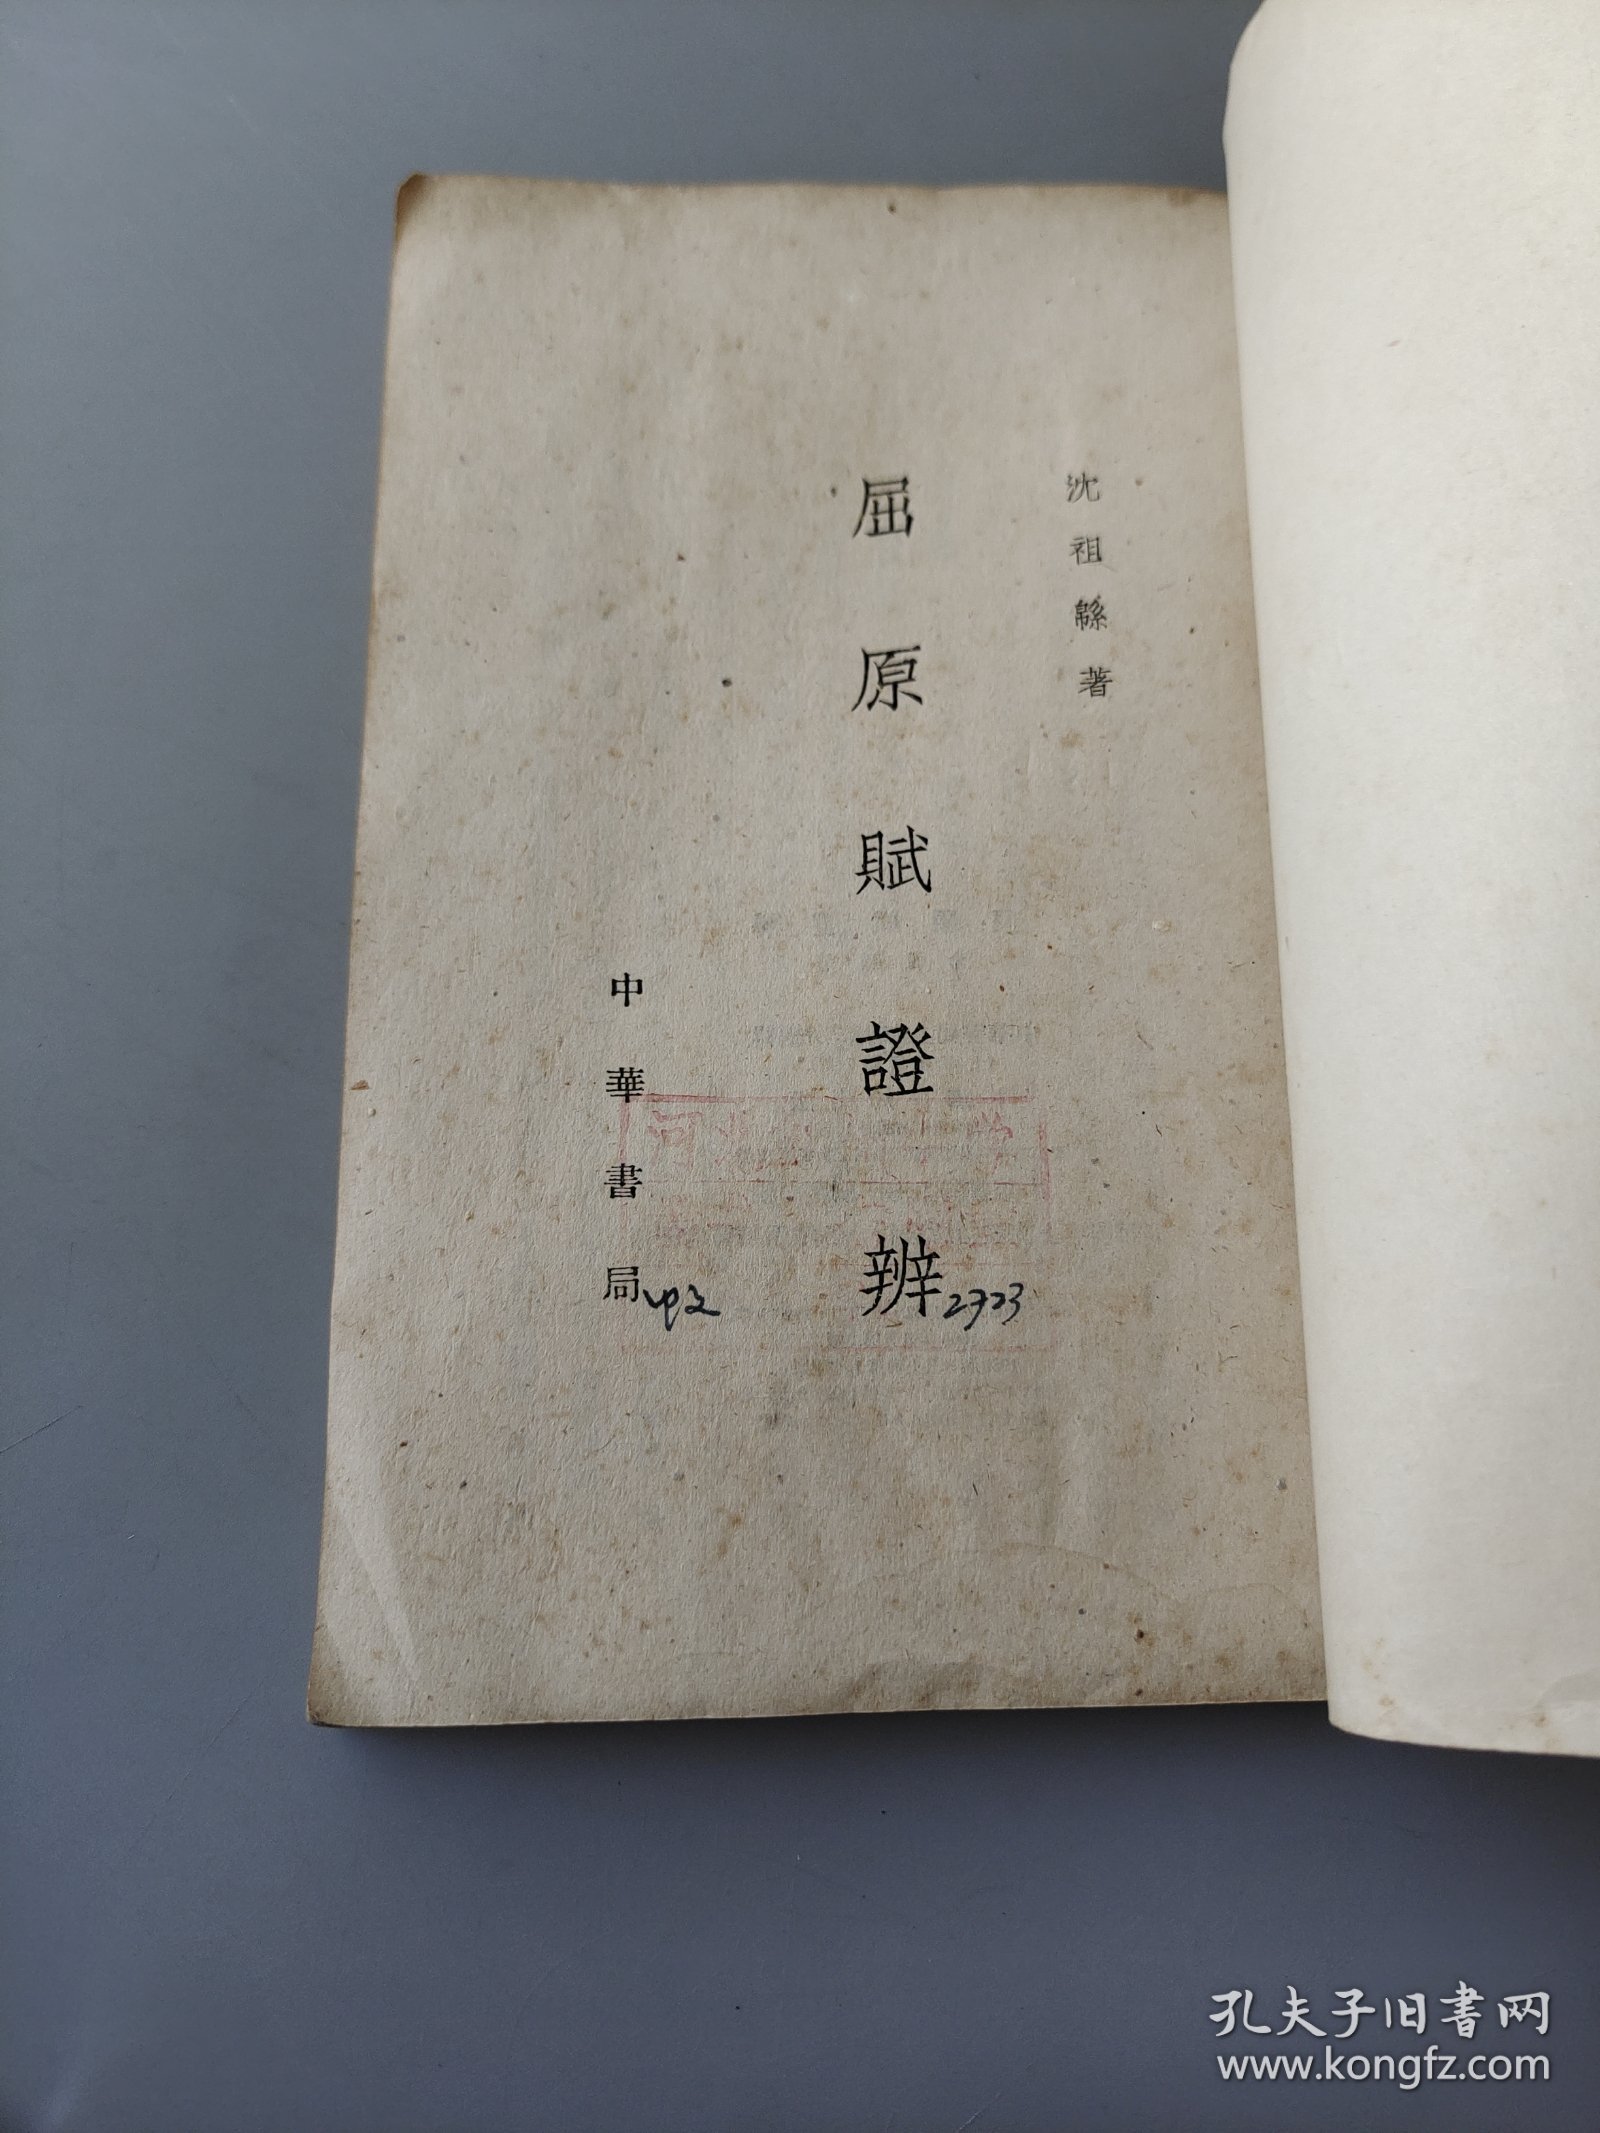 沈祖緜著
屈原賦證辨
中華書局
中文
2723
孔夫子旧书网
www.kongfz.com